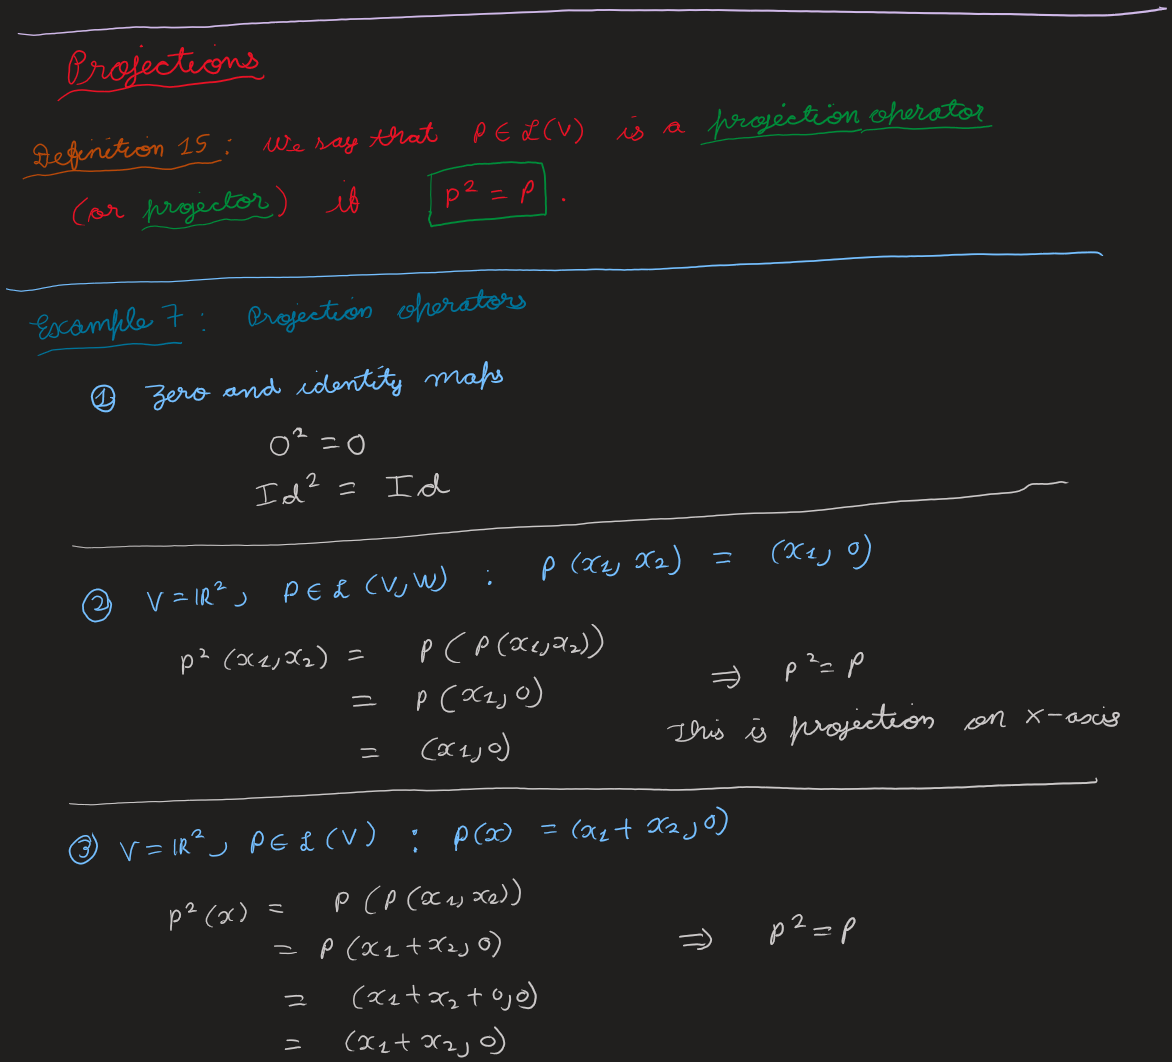 Projections
Definition 15 : We say that P ∈ ℒ(V) is a projection operator
(or projector) if P² = P .
Example 7 : Projection operators
① Zero and identity maps
0² = 0
Id² = Id
② V = ℝ², P ∈ ℒ (V, W) : P (x₁, x₂) = (x₁, 0)
P² (x₁, x₂) = P ( P (x₁, x₂))
= P (x₁, 0) ⇒ P² = P
= (x₁, 0) This is projection on x-axis
③ V = ℝ², P ∈ ℒ (V) : P(x) = (x₁ + x₂, 0)
P² (x) = P (P (x₁, x₂))
= P (x₁ + x₂, 0) ⇒ P² = P
= (x₁ + x₂ + 0, 0)
= (x₁ + x₂, 0)